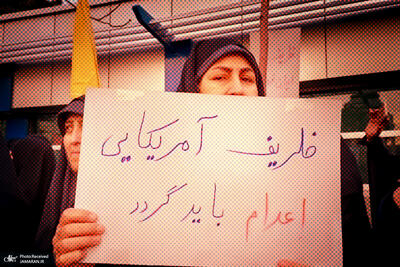 ظریف آمریکایی
اعدام باید گردد
Photo:Received
JAMARAN.IR